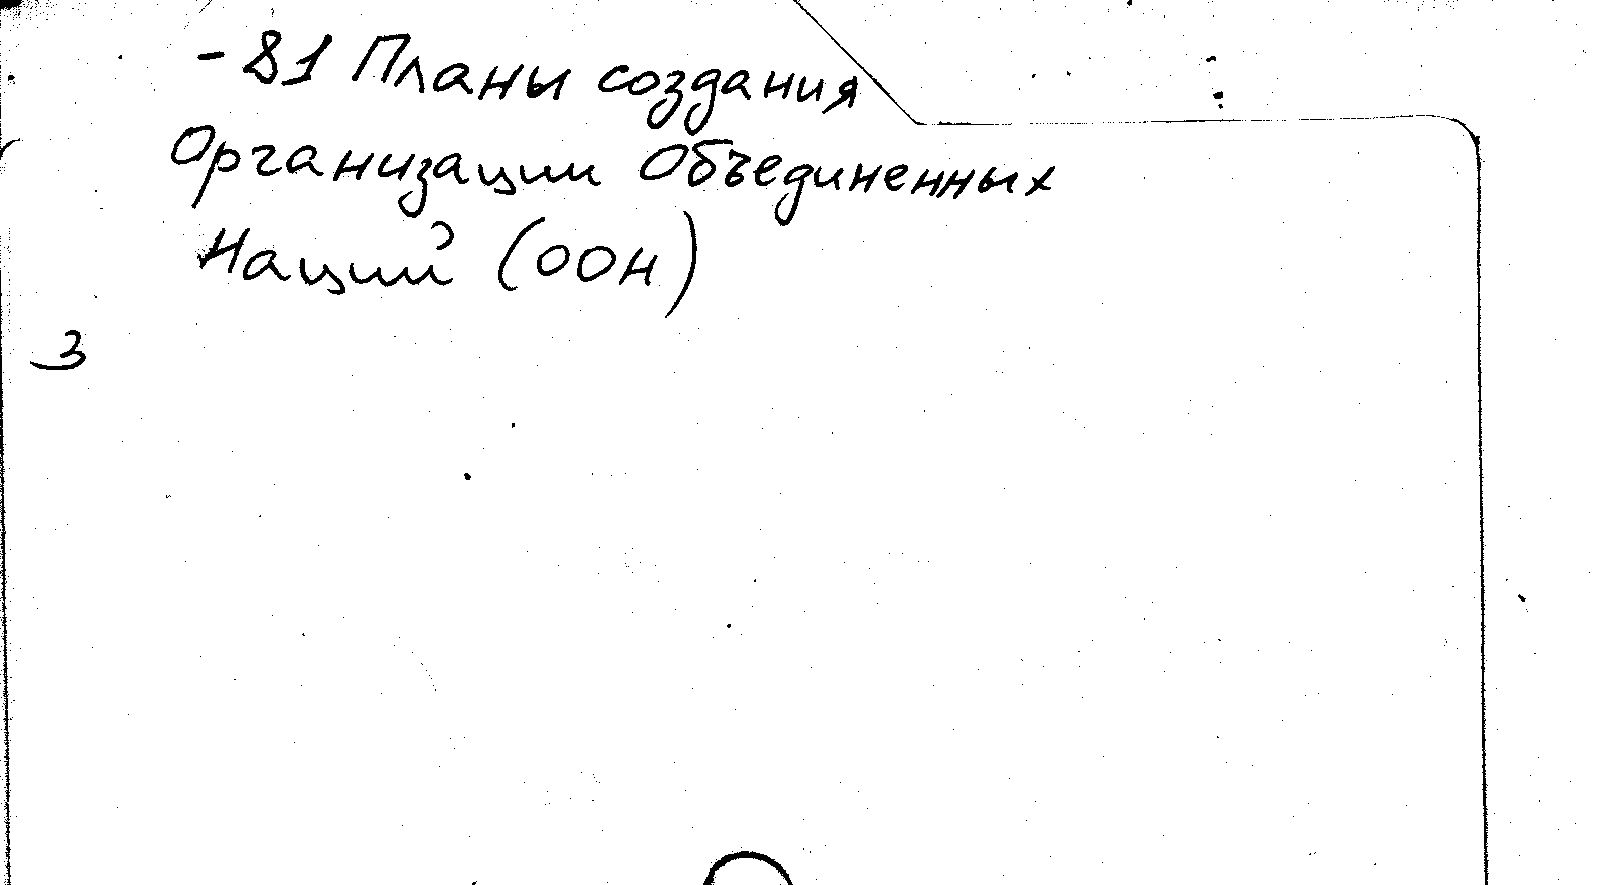 - 81 Планы создания
Организации Объединенных
Наций (ООН)
3